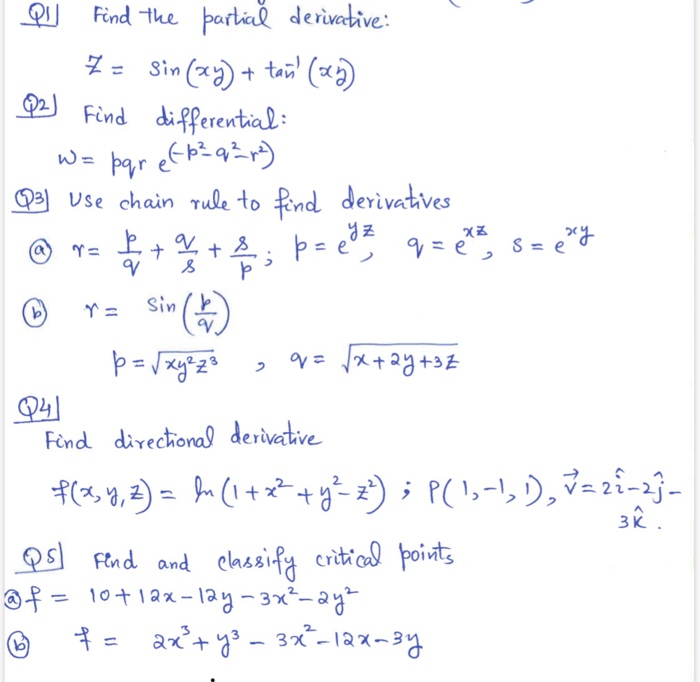 Q1 Find the partial derivative:
Z = sin(xy) + tan⁻¹(xy)
Q2 Find differential:
w = pqr e^(-p²-q²-r²)
Q3 Use chain rule to find derivatives
(a) r = p/q + q/s + s/p ; p = e^yz, q = e^xz, s = e^xy
(b) r = sin(p/q)
p = √xy²z³ , q = √x+2y+3z
Q4
Find directional derivative
f(x,y,z) = ln(1+x²+y²-z²) ; P(1,-1,1), v⃗ = 2î-2ĵ-
3k̂.
Q5 Find and classify critical points
(a) f = 10+12x-12y-3x²-2y²
(b) f = 2x³+y³-3x²-12x-3y